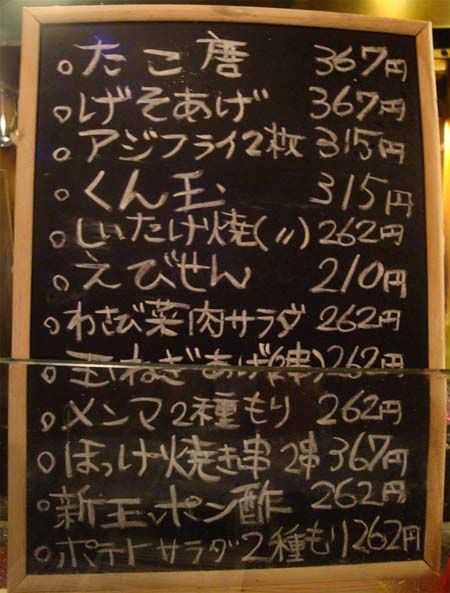 。たこ唐 367円
。げそあげ 367円
。アジフライ2枚 315円
。くん玉 315円
。しいたけ焼(〃) 262円
。えびせん 210円
。わさび菜肉サラダ 262円
。玉ねぎあげ(串) 262円
。メンマ2種もり 262円
。ほっけ焼き串 2串 367円
。新玉ポン酢 262円
。ポテトサラダ2種もり262円